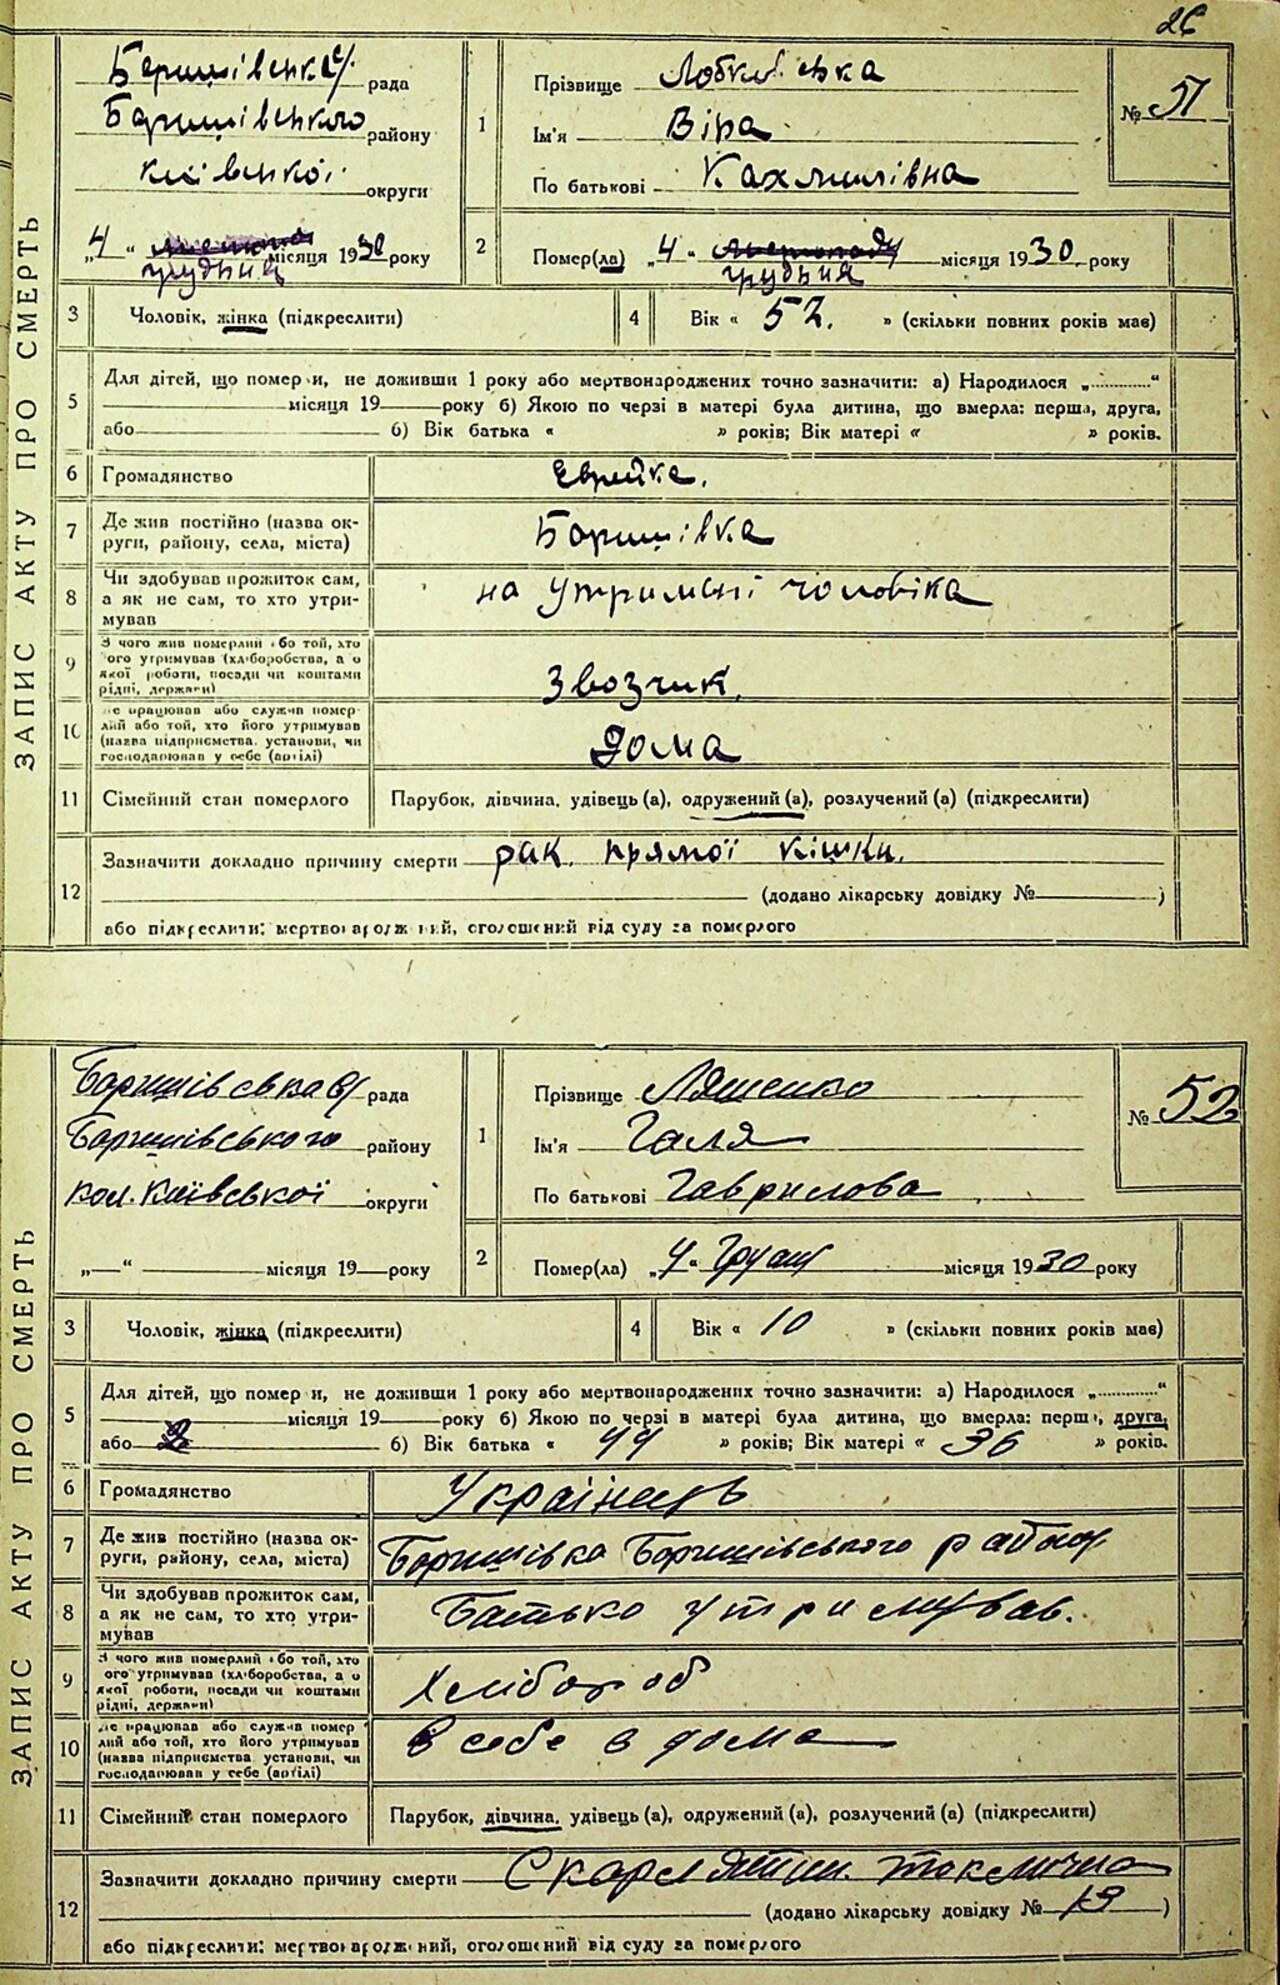 26
ЗАПИС АКТУ ПРО СМЕРТЬ
рада
Баришівського району
округи
1
Прізвище
Ім'я Віра
По батькові
№ 51
„4“ грудня місяця 1930 року
2
Помер(ла) „4“ грудня місяця 1930 року
3 Чоловік, жінка (підкреслити)
4 Вік « 52. » (скільки повних років має)
5
Для дітей, що померли, не доживши 1 року або мертвонароджених точно зазначити: а) Народилося „............“
місяця 19 року б) Якою по черзі в матері була дитина, що вмерла: перша, друга,
або б) Вік батька « » років; Вік матері « » років.
6 Громадянство Еврейка.
7 Де жив постійно (назва ок-
руги, району, села, міста) Баришівка
8 Чи здобував прожиток сам,
а як не сам, то хто утри-
мував
на утримані чоловіка
9 З чого жив померлий або той, хто
ого утримував (хліборобства, а о
якої роботи, посади чи коштами
рідні, держави)
Звозчик.
10 Де працював або служив помер-
лий або той, хто його утримував
(назва підприємства, установи, чи
господарював у себе (артілі)
Дома
11 Сімейний стан померлого Парубок, дівчина, удівець (а), одружений (а), розлучений (а) (підкреслити)
12
Зазначити докладно причину смерти рак прямої кішки.
(додано лікарську довідку № )
або підкреслити: мертвонароджений, оголошений від суду за померлого
ЗАПИС АКТУ ПРО СМЕРТЬ
рада
Баришівського району
кол. Київської округи
1
Прізвище Ляшенко
Ім'я Галя
По батькові Гаврилова
№ 52
„ “ місяця 19 року
2
Помер(ла) „4“ місяця 1930 року
3 Чоловік, жінка (підкреслити)
4 Вік « 10 » (скільки повних років має)
5
Для дітей, що померли, не доживши 1 року або мертвонароджених точно зазначити: а) Народилося „............“
місяця 19 року б) Якою по черзі в матері була дитина, що вмерла: перша, друга,
або 2 б) Вік батька « 44 » років; Вік матері « 36 » років.
6 Громадянство
7 Де жив постійно (назва ок-
руги, району, села, міста) Баришівка Баришівського району
8 Чи здобував прожиток сам,
а як не сам, то хто утри-
мував
Батько утримував.
9 З чого жив померлий або той, хто
ого утримував (хліборобства, а о
якої роботи, посади чи коштами
рідні, держави)
Хлібороб
10 Де працював або служив помер
лий або той, хто його утримував
(назва підприємства, установи, чи
господарював у себе (артілі)
в себе в дома
11 Сімейний стан померлого Парубок, дівчина, удівець (а), одружений (а), розлучений (а) (підкреслити)
12
Зазначити докладно причину смерти
(додано лікарську довідку № 19 )
або підкреслити: мертвонароджений, оголошений від суду за померлого